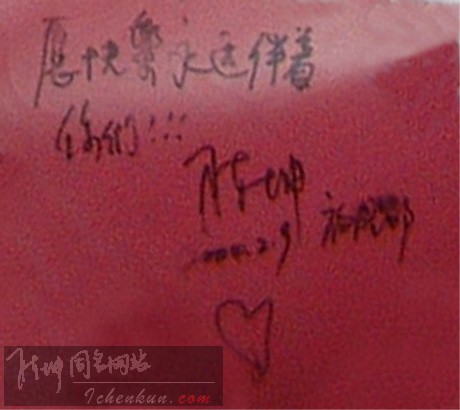 愿快樂永远伴着
你们!!!
陈坤
2004.2.9 於成都
陈坤 同名网站
1chenkun.com